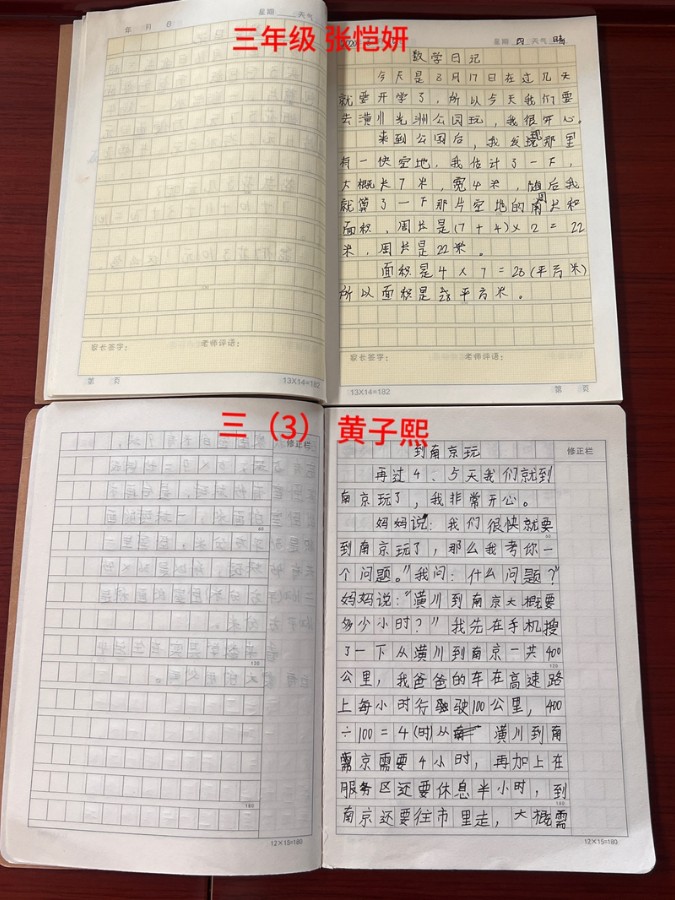 年 月 日
星期 天气
三年级 张恺妍
星期 四 天气 晴
数学日记
今天是8月17日在过几天
就要开学了，所以今天我们要
去潢川光洲公园玩，我很开心。
来到公园后，我发现那里
有一快空地，我估计了一下，
大概长7米，宽4米，随后我
就算了一下那片空地的周长和
面积，周长是(7+4)×2=22
米，周长是22米。
面积是4×7=28(平方米)
所以面积是28平方米。
家长签字： 老师评语：
第 页
13X14=182
家长签字： 老师评语：
13X14=182
第 页
三（3） 黄子熙
修正栏
到南京玩
修正栏
再过4、5天我们就到
南京玩了，我非常开心。
妈妈说：我们很快就要
到南京玩了，那么我考你一
个问题。”我问：什么问题？”
妈妈说：“潢川到南京大概要
多少小时？”我先在手机搜
了一下从潢川到南京一共400
公里，我爸爸的车在高速路
上每小时行驶100公里，400
÷100=4(时)从潢川到南
京需要4小时，再加上在
服务区还要休息半小时，到
南京还要往市里走，大概需
12×15=180
12×15=180